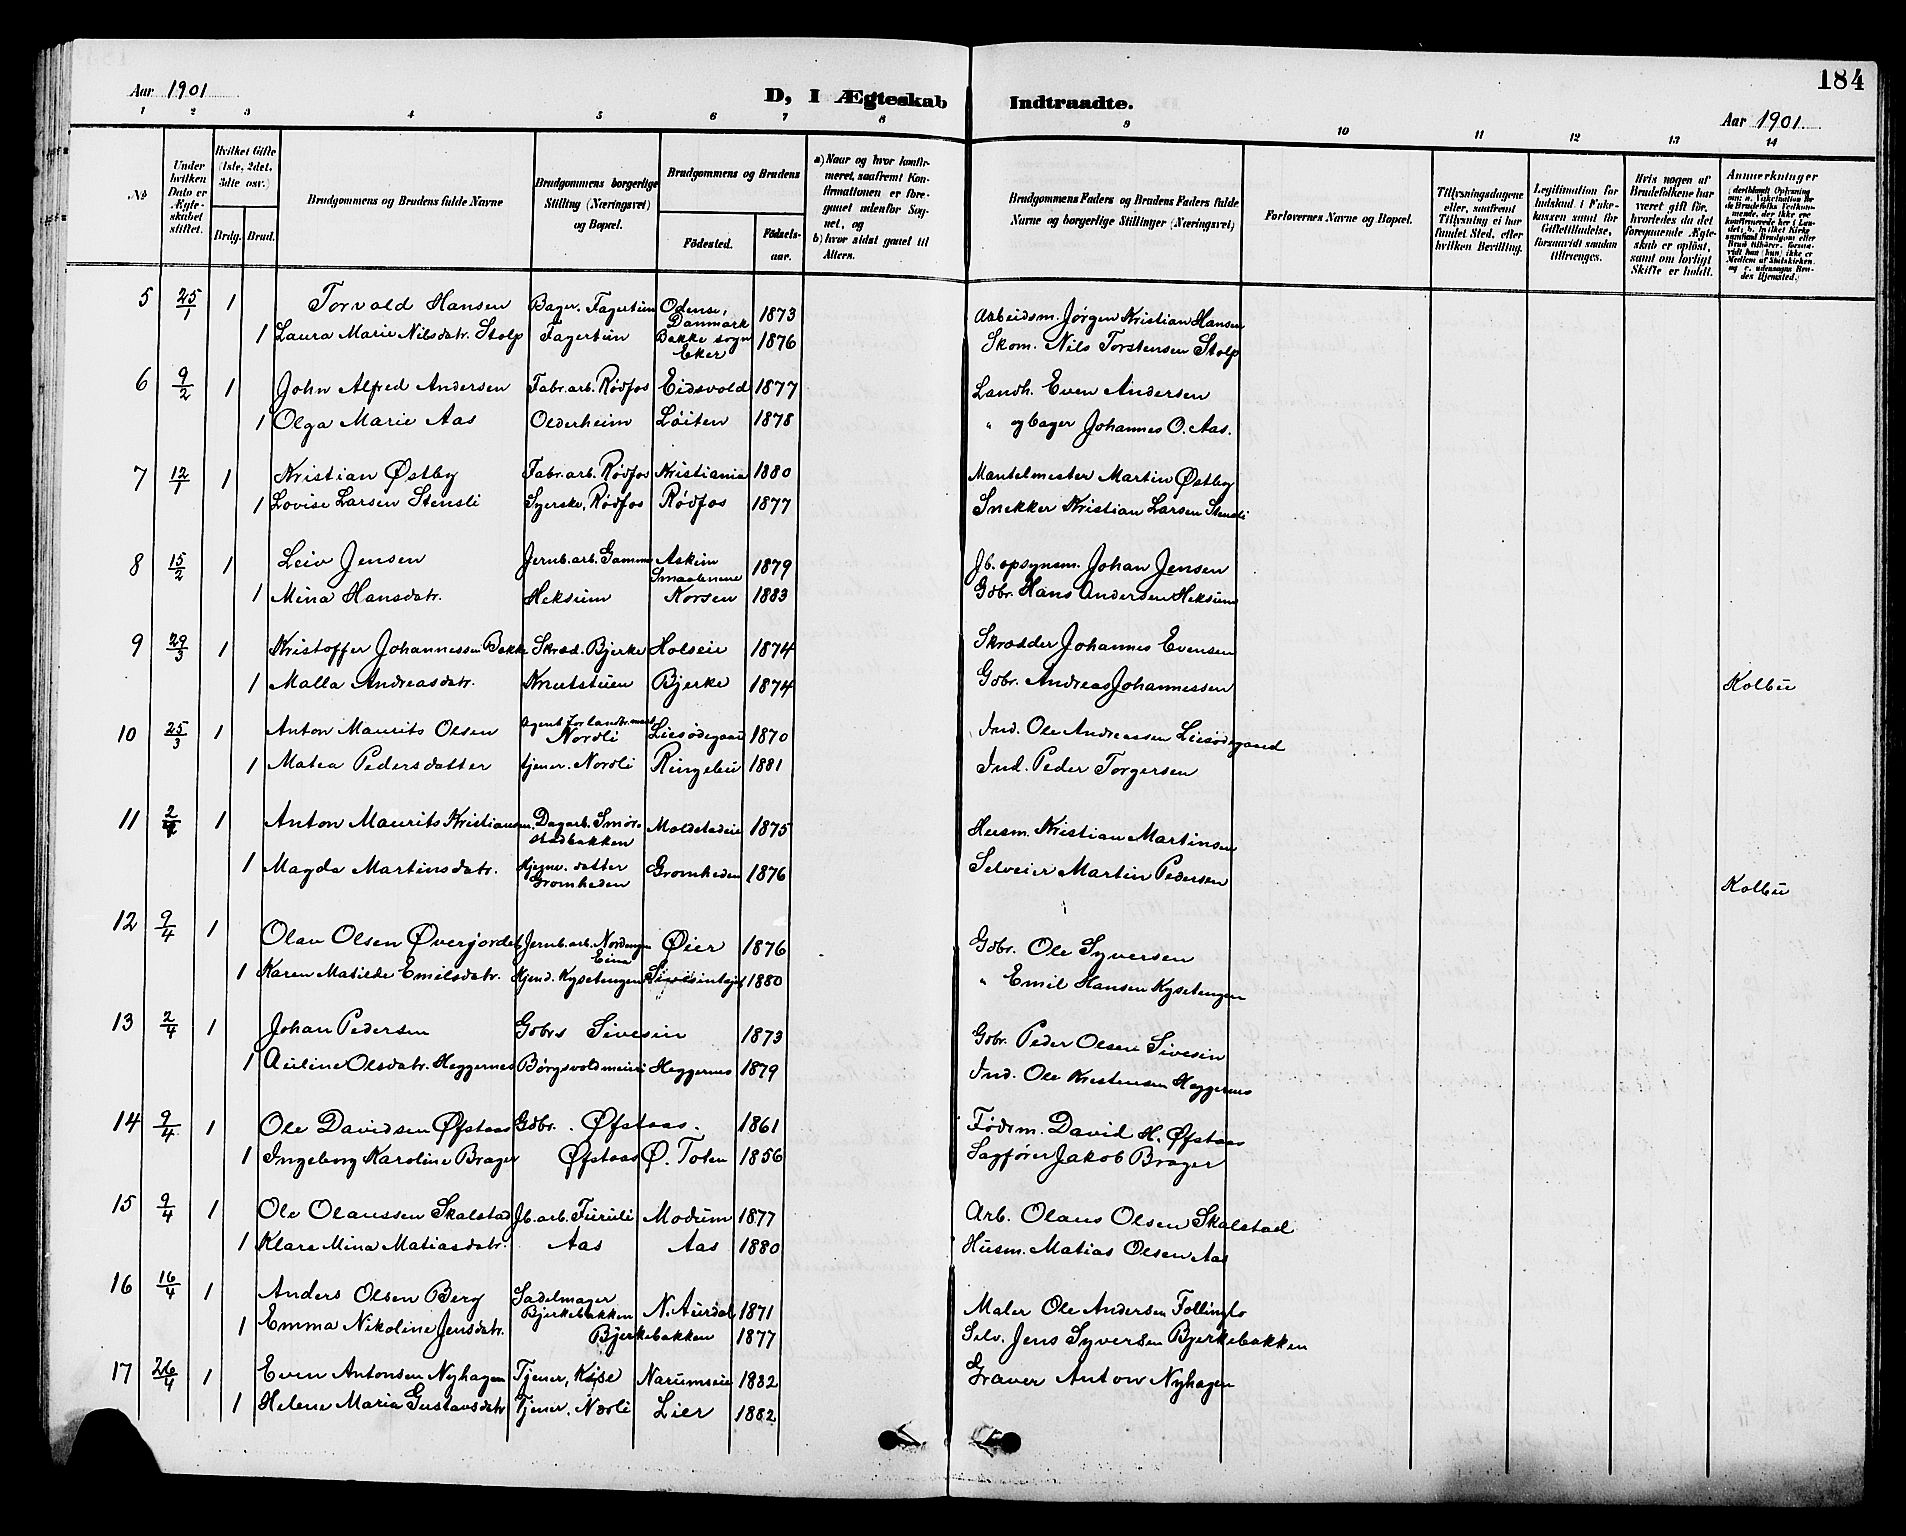 184
Aar 1901
D, I Ægteskab Indtraadte.
Aar 1901.
1 2 3 4 5 6 7 8 9 10 11 12 13 14
№
Under hvilken Dato er Ægteskabet stiftet.
Hvilket Gifte (1ste, 2det, 3die osv.)
Brdg. Brud.
Brudgommens og Brudens fulde Navne
Brudgommens borgerlige Stilling (Næringsvei) og Bopæl.
Brudgommens og Brudens
Fødested. Fødselsaar.
a) Naar og hvor konfirmeret, saafremt Konfirmationen er foregaaet udenfor Sognet, og
b) hvor sidst gaaet til Alters.
Brudgommens Faders og Brudens Faders fulde Navne og borgerlige Stillinger (Næringsvei)
Forlovernes Navne og Bopæl.
Tillysningsdagene eller, saafremt Tillysning ei har fundet Sted, efter hvilken Bevilling.
Legitimation for Indskud i Enkekassen samt for Giftetilladelse, forsaavidt saadan tiltrænges.
Hvis nogen af Brudefolkene har været gift før, hvorledes da det foregaaende Ægteskab er opløst, samt om lovligt Skifte er holdt.
Anmærkninger
5 25/1 1 Torvald Hansen Bager. Fagertun Odense, Danmark 1873 Arbeidsm. Jørgen Kristian Hansen
1 Laura Marie Nilsdatr. Stolp Fagertun Bakke sogn Eker 1876 Skom. Nils Torstensen Stolp
6 9/2 1 John Alfred Andersen Fabr.arb. Rødfos Eidsvold 1877 Landh. Even Andersen
1 Olga Marie Aas Olderheim Løiten 1878 " og bager Johannes O. Aas.
7 12/1 1 Kristian Østby Fabr.arb. Rødfos Kristiania 1880 Martin Østby
1 Lovise Larsen Stensli Syerske, Rødfos Rødfos 1877 Snekker Kristian Larsen Stensli
8 15/2 1 Leiv Jensen Jernb.arb. Gamme Askim Smaalenene 1879 Jb. opsynsm. Johan Jensen
1 Mina Hansdatr. Heksum Korsen 1883 Gdbr. Hans Andersen Heksum
9 29/3 1 Kristoffer Johannessen Bakke Skræd. Bjerke Holseie 1874 Skrædder Johannes Evensen
1 Malla Andreasdatr. Knutstuen Bjerke 1874 Gdbr. Andreas Johannessen Kolbu
10 25/3 1 Anton Maurits Olsen Agent for landbr.mask Nordli Liesødegaard 1870 Ind. Ole Andreassen Liesødegaard
1 Matea Pedersdatter tjener. Nordli Ringebu 1881 Ind. Peder Torgersen
11 2/4 1 Anton Maurits Kristiansen Dagarb. Smørstadbakken Moldstadeie 1875 Husm. Kristian Martinsen
1 Magda Martinsdatr. Hjemv. datter Gromheden Gromheden 1876 Selveier Martin Pedersen Kolbu
12 9/4 1 Olav Olsen Øverjordet Jernb.arb. Nordengen Eina Øier 1876 Gdbr. Ole Syversen
1 Karen Matilde Emilsdatr. Hjemd. Kysetengen 1880 " Emil Hansen Kysetengen
13 2/4 1 Johan Pedersen Gdbrs Sivesin 1873 Gdbr. Peder Olsen Sivesin
1 Auline Olsdatr. Heggernes Børgsvoldmeieri Heggernes 1879 Ind. Ole Kristensen Heggernes
14 9/4 1 Ole Davidsen Øfstaas Gdbr. Øfstaas. 1861 Føderm. David H. Øfstaas
1 Ingeborg Karoline Brager Øfstaas Ø. Toten 1856 Sagfører Jakob Brager
15 9/4 1 Ole Olaussen Skalstad Jb.arb. Furuli Modum 1877 Arb. Olaus Olsen Skalstad
1 Klara Mina Matiasdatr. Aas Aas 1880 Husm. Matias Olsen Aas
16 16/4 1 Anders Olsen Berg Sadelmager Bjerkebakken N. Aurdal 1871 Maler Ole Andersen Follinglo
1 Emma Nikoline Jensdatr. Bjerkebakken 1877 Selv. Jens Syversen Bjerkebakken
17 26/4 1 Even Antonsen Nyhagen Tjener, Kyse Narumseie 1882 Graver Anton Nyhagen
1 Helene Maria Gustavsdatr Tjener. Nordli Lier 1882